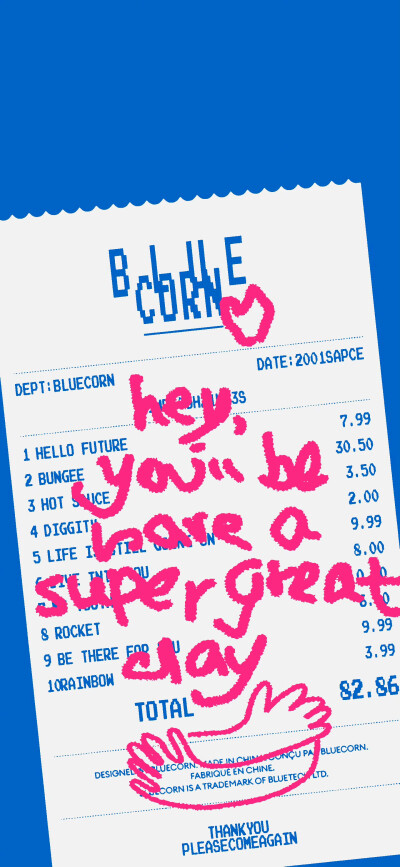 BLUE
CORN
DEPT:BLUECORN
DATE:2001SAPCE
hey,
1 HELLO FUTURE 7.99
2 BUNGEE 30.50
you'll be
3 HOT SAUCE 3.50
4 DIGGITY 2.00
have a
5 LIFE IS STILL GOING ON 9.99
8.00
super great
8 ROCKET
9 BE THERE FOR YOU 9.99
day
10RAINBOW 3.99
TOTAL 82.86
DESIGNED BLUECORN. MADE IN CHINA CONÇU PAR BLUECORN.
FABRIQUÉ EN CHINE.
CORN IS A TRADEMARK OF BLUETECH LTD.
THANKYOU
PLEASECOMEAGAIN